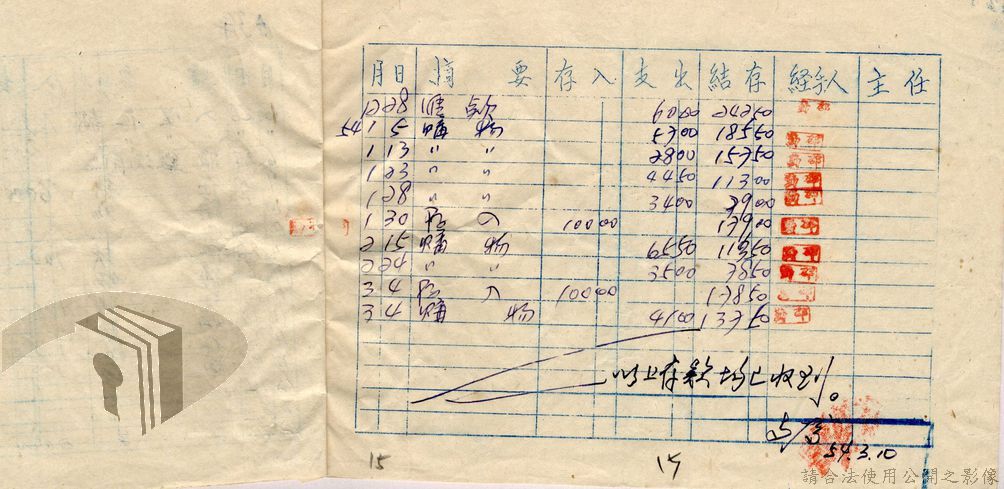 月日 摘要 存入 支出 結存 経手人 主任
12 28 匯款 6000 24250
54 1 5 購物 5700 18550
1 13 〃 〃 2800 15750
1 23 〃 〃 4450 11300
1 28 〃 〃 3400 7900
1 30 存入 10000 17900
2 15 購物 6550 11350
2 24 〃 〃 3500 7850
3 4 存入 10000 17850
3 4 購物 4100 13750
以上存款均已收到。
54.3.10
15 15
請合法使用公開之影像